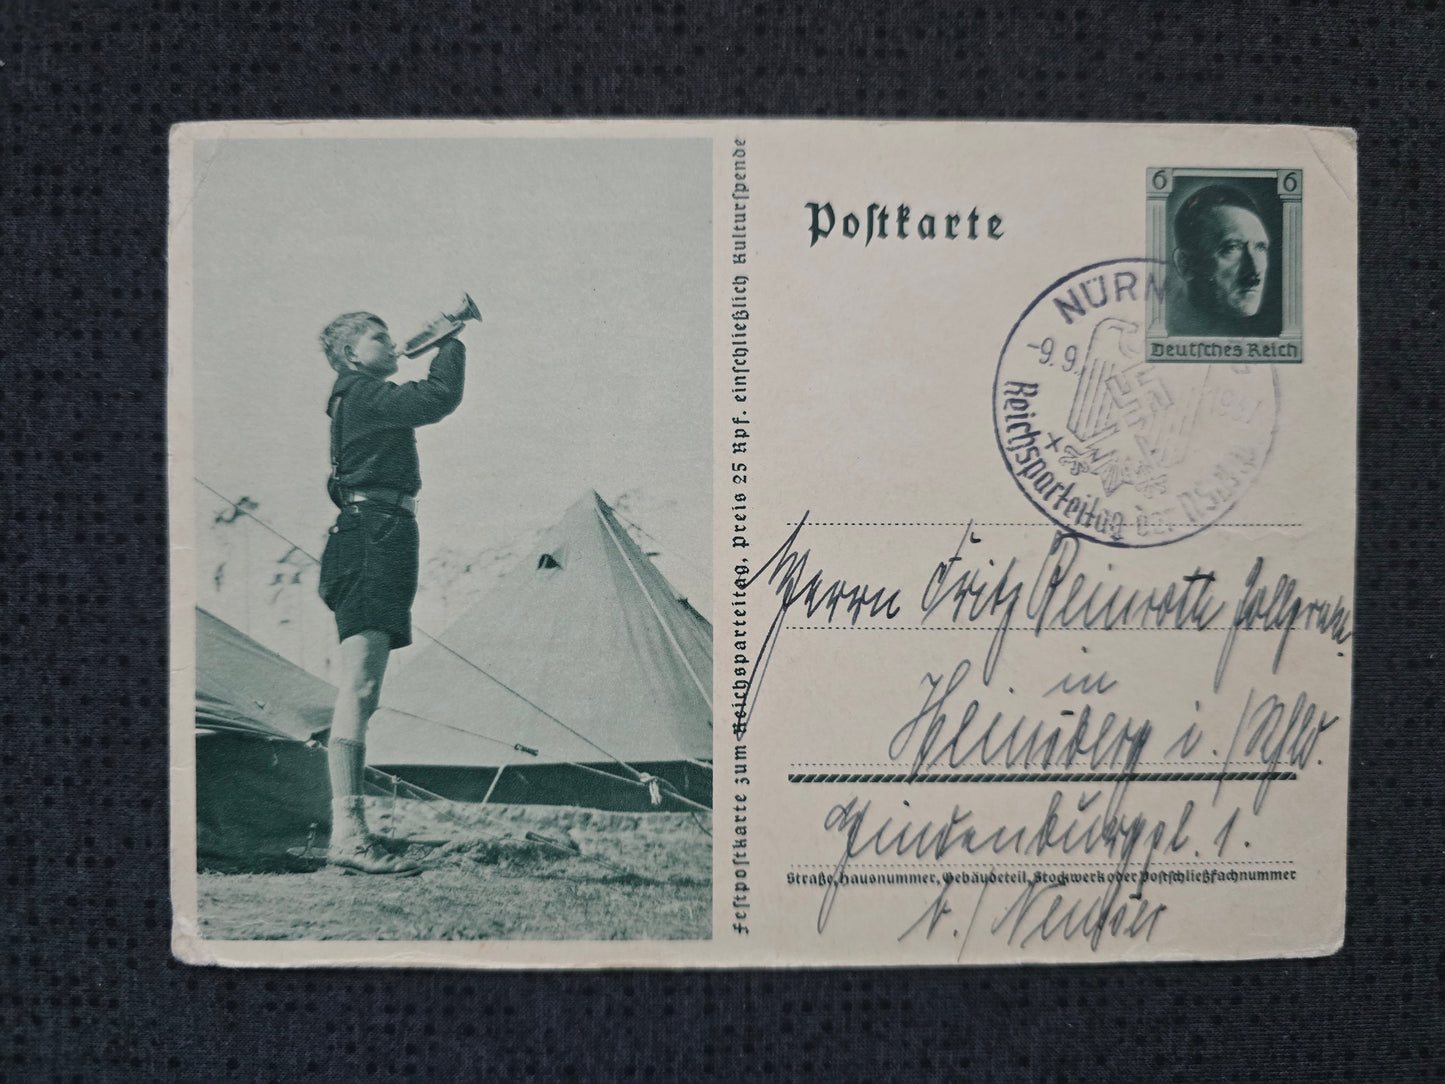 Postkarte
6 6
Deutsches Reich
NÜRN
-9.9. 1937
Reichsparteitag der NSDAP
Festpostkarte zum Reichsparteitag, Preis 25 Rpf. einschließlich Kulturspende
Herrn Fritz Reinroth
in
Heinsberg i./
Hindenburgpl. 1.
Straße, Hausnummer, Gebäudeteil, Stockwerk oder Postschließfachnummer
b./